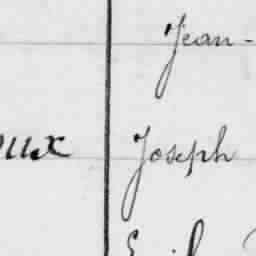 Jean-
oux Joseph